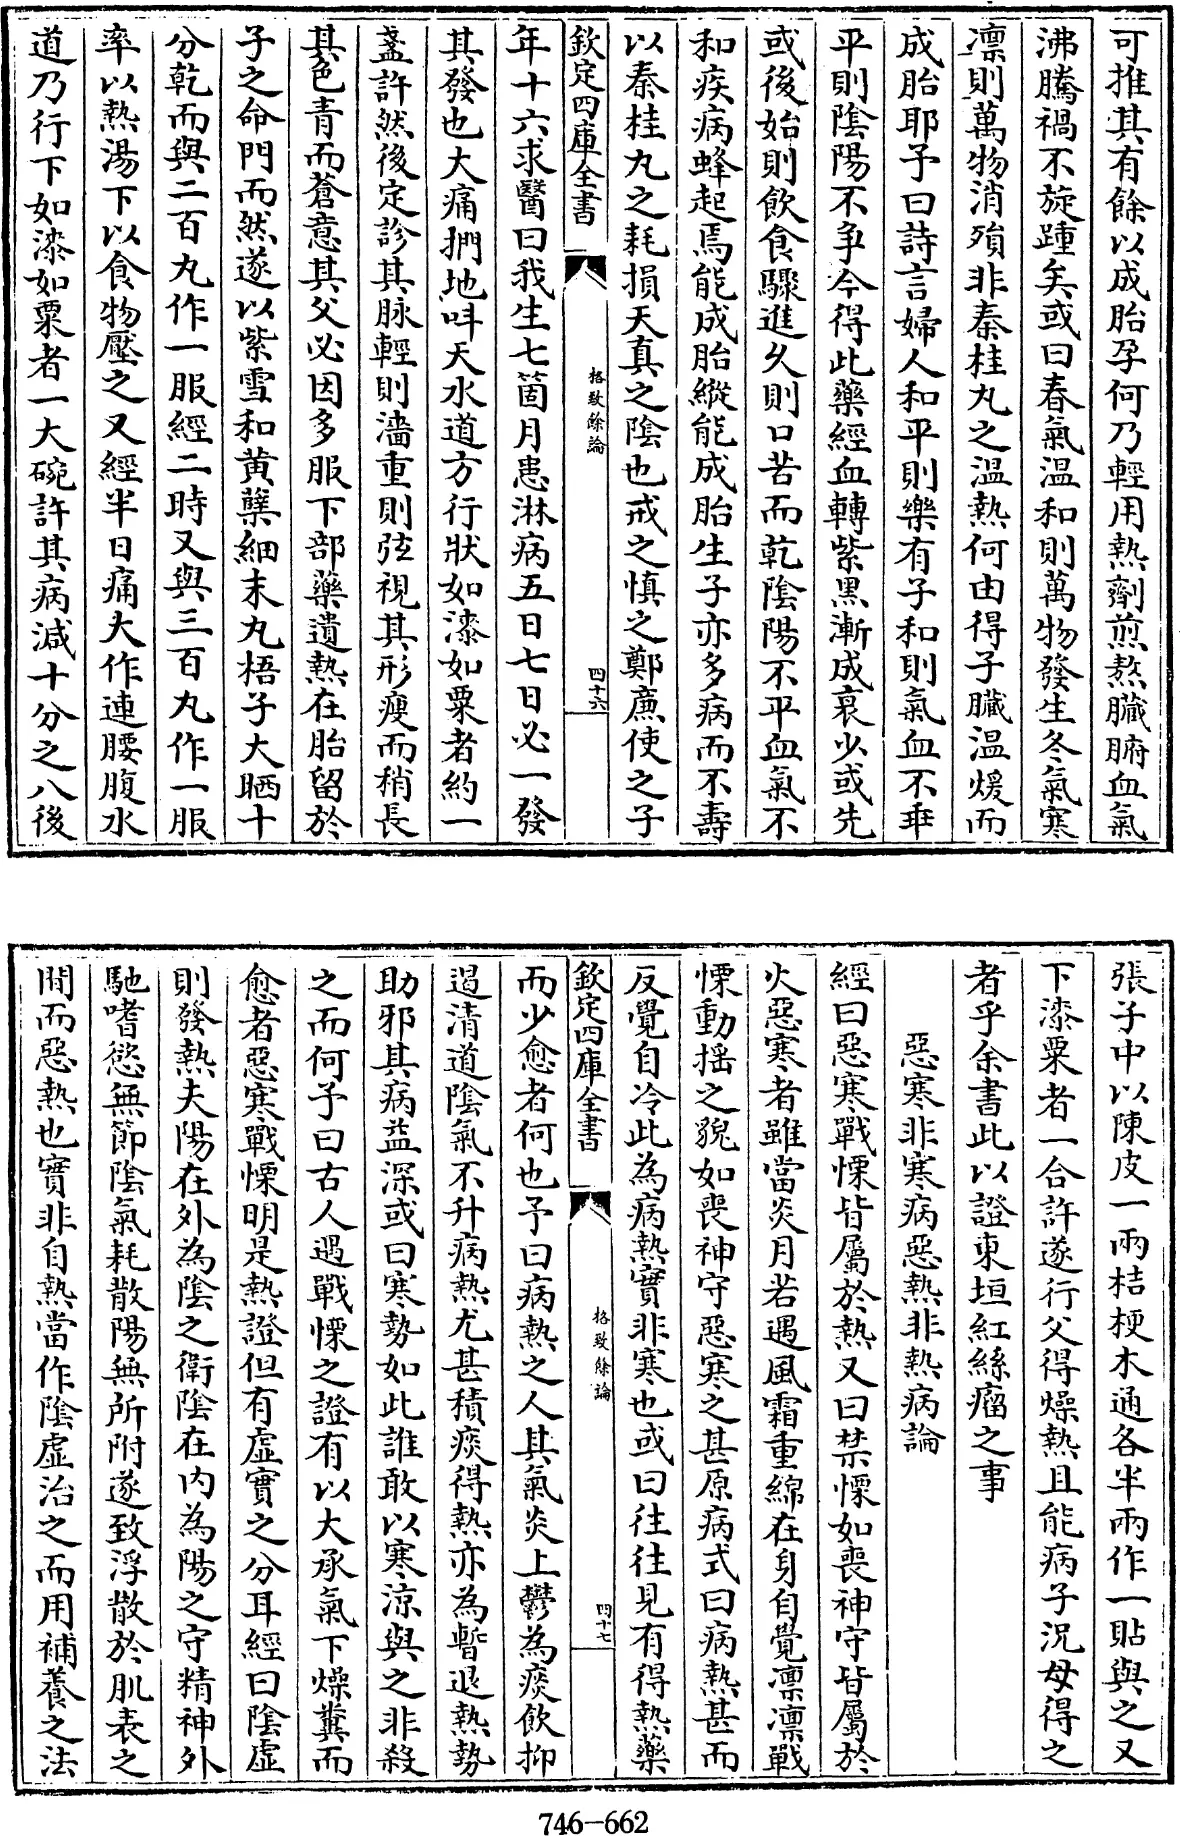 可推其有餘以成胎孕何乃輕用熱劑煎熬臟腑血氣
沸騰禍不旋踵矣或曰春氣溫和則萬物發生冬氣寒
凛則萬物消殞非秦桂丸之溫熱何由得子臟溫煖而
成胎耶予曰詩言婦人和平則樂有子和則氣血不乖
平則陰陽不爭今得此藥經血轉紫黒漸成衰少或先
或後始則飲食驟進久則口苦而乾陰陽不平血氣不
和疾病蜂起焉能成胎縱能成胎生子亦多病而不壽
以秦桂丸之耗損天真之陰也戒之慎之鄭廉使之子
欽定四庫全書
格致餘論
四十六
年十六求醫曰我生七箇月患淋病五日七日必一發
其發也大痛捫地叫天水道方行狀如漆如粟者約一
盞許然後定診其脉輕則濇重則弦視其形瘦而稍長
其色青而蒼意其父必因多服下部藥遺熱在胎留於
子之命門而然遂以紫雪和黄蘗細末丸梧子大晒十
分乾而與二百丸作一服經二時又與三百丸作一服
率以熱湯下以食物壓之又經半日痛大作連腰腹水
道乃行下如漆如粟者一大碗許其病減十分之八後
張子中以陳皮一兩桔梗木通各半兩作一貼與之又
下漆粟者一合許遂行父得燥熱且能病子況母得之
者乎余書此以證東垣紅絲瘤之事
惡寒非寒病惡熱非熱病論
經曰惡寒戰慄皆屬於熱又曰禁慄如喪神守皆屬於
火惡寒者雖當炎月若遇風霜重綿在身自覺凛凛戰
慄動揺之貌如喪神守惡寒之甚原病式曰病熱甚而
反覺自冷此為病熱實非寒也或曰往往見有得熱藥
欽定四庫全書
格致餘論
四十七
而少愈者何也予曰病熱之人其氣炎上鬱為痰飲抑
遏清道陰氣不升病熱尤甚積痰得熱亦為暫退熱勢
助邪其病益深或曰寒勢如此誰敢以寒涼與之非殺
之而何予曰古人遇戰慄之證有以大承氣下燥糞而
愈者惡寒戰慄明是熱證但有虛實之分耳經曰陰虛
則發熱夫陽在外為陰之衛陰在内為陽之守精神外
馳嗜慾無節陰氣耗散陽無所附遂致浮散於肌表之
間而惡熱也實非自熱當作陰虛治之而用補養之法
746-662